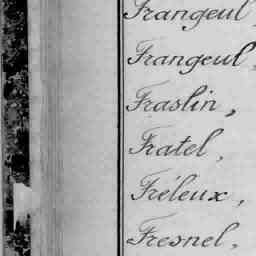 Frangeul
Frangeul,
Fraslin,
Fratel,
Fréleux,
Fresnel,